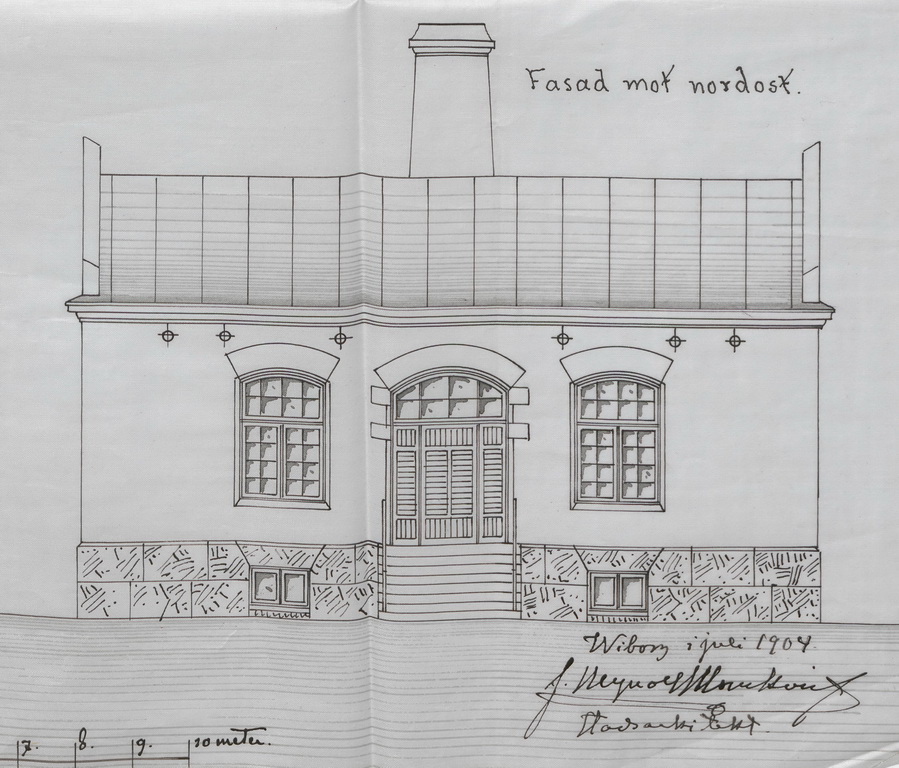 Fasad mot nordost.
Wiborg i juli 1904.
J. Brynolf Blomkvist
Stadsarkitekt.
7. 8. 9. 10 meter.